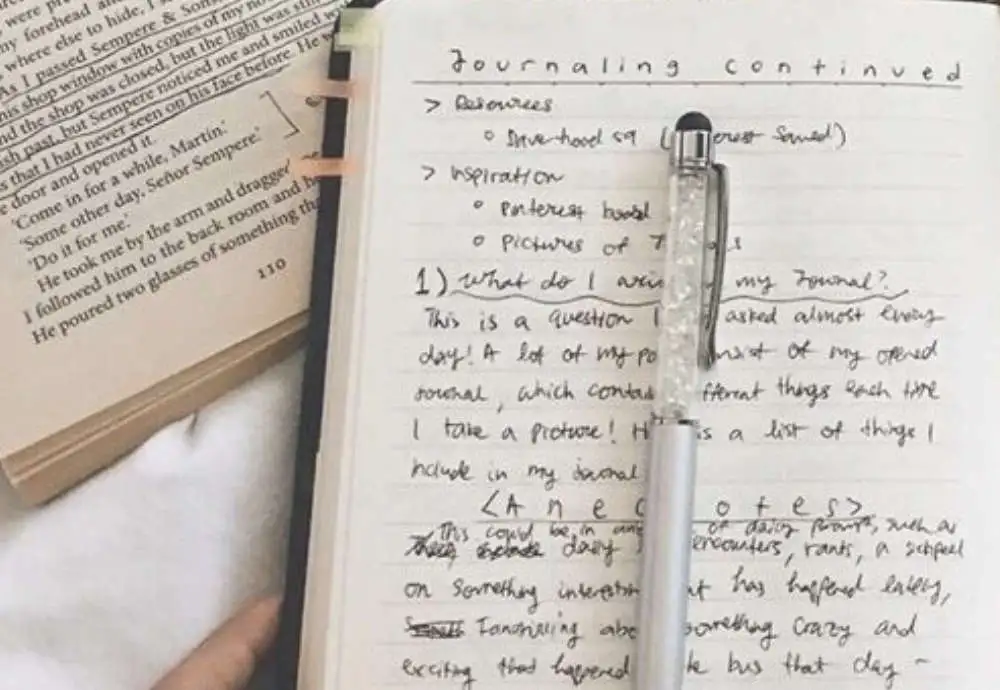 were pr
my forehead an
where else to hide, I
As I passed Sempere & Sons
his shop window with copies of my no
nd the shop was closed, but the light was still
ish past, but Sempere noticed me and smiled wi
s that I had never seen on his face before. He w
e door and opened it.
'Come in for a while, Martín.'
'Some other day, Señor Sempere.'
'Do it for me.'
He took me by the arm and dragged
I followed him to the back room and he
He poured two glasses of something tha
110
Journaling continued
> Resources
erest saved)
> inspiration
o Pinterest board
o Pictures of
1) What do I my Journal?
This is a question I asked almost every
day! A lot of my po nsist of my opened
journal, which contai fferent things each time
I take a picture! H is a list of things I
include in my journal
<Anec otes>
This could be in any of daily prompts, such as
daily encounters, rants, a schpeel
on something interestin at has happened lately,
abo something crazy and
exciting that happened e bus that day -